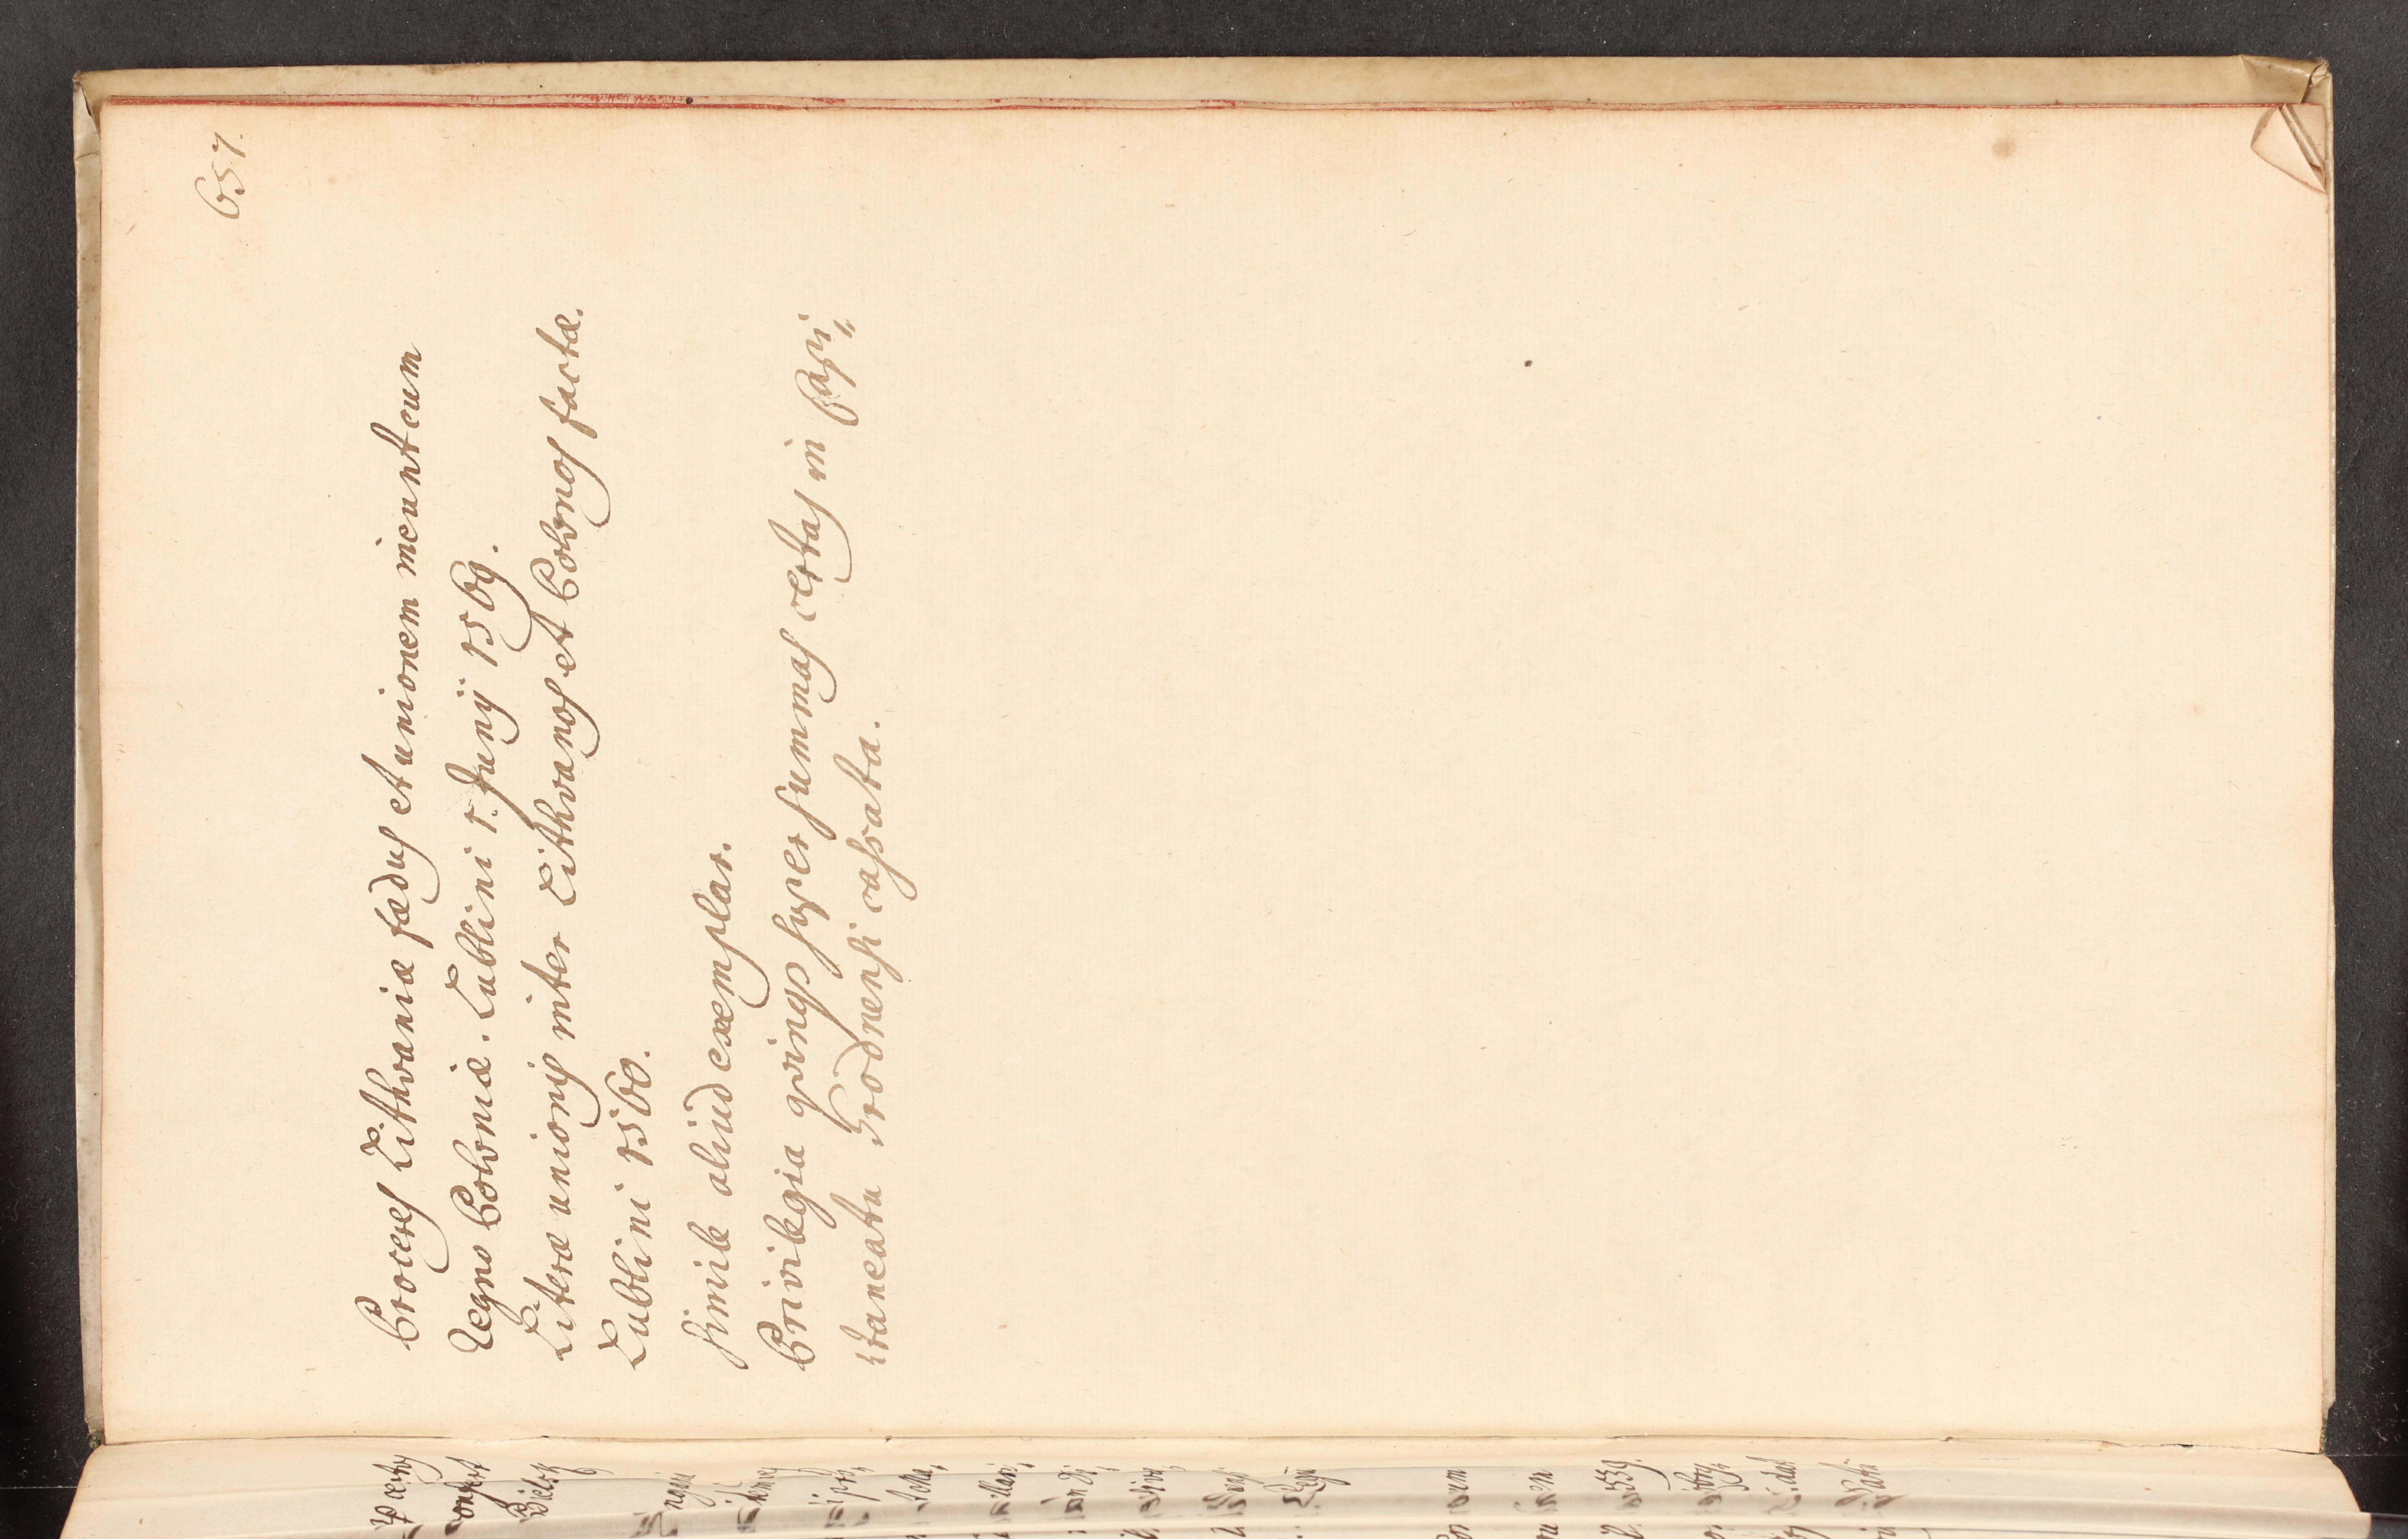 657.
Proceres Lithvaniæ fædus et unionem ineunt cum
Regno Poloniæ. Lublini 1. Junÿ 1569.
Literæ unionis inter Lithvanos et Polonos factæ.
Lublini 1560.
Simile aliud exemplar.
Privilegia super summas certas in Capi„
taneatu Grodnensi cassata.